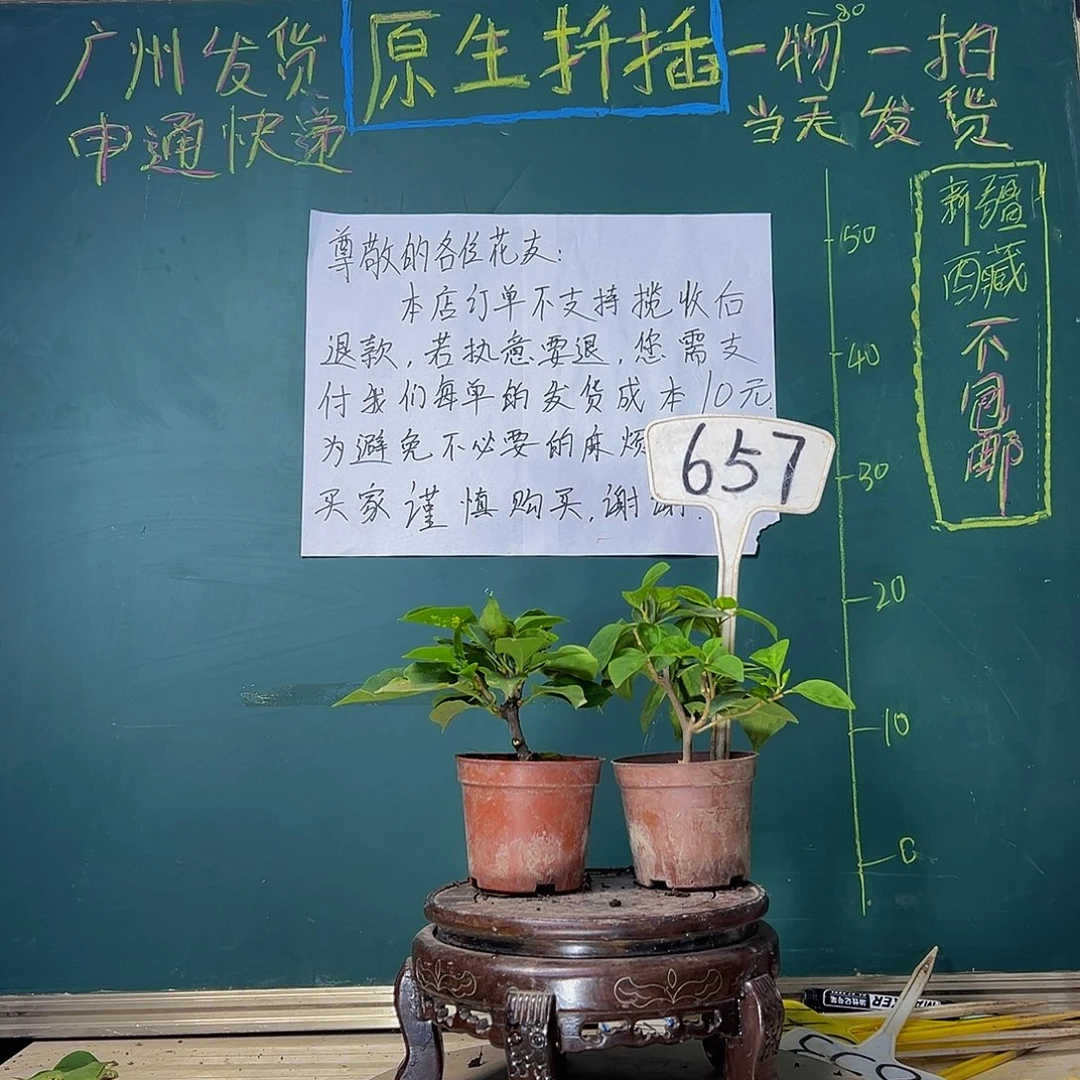 广州发货
申通快递
原生扦插
一物一拍
当天发货
新疆
西藏
不包邮
尊敬的各位花友:
本店订单不支持揽收后
退款,若执意要退,您需支
付我们每单的发货成本10元.
为避免不必要的麻烦
买家谨慎购买,谢谢.
657
50
40
30
20
10
0